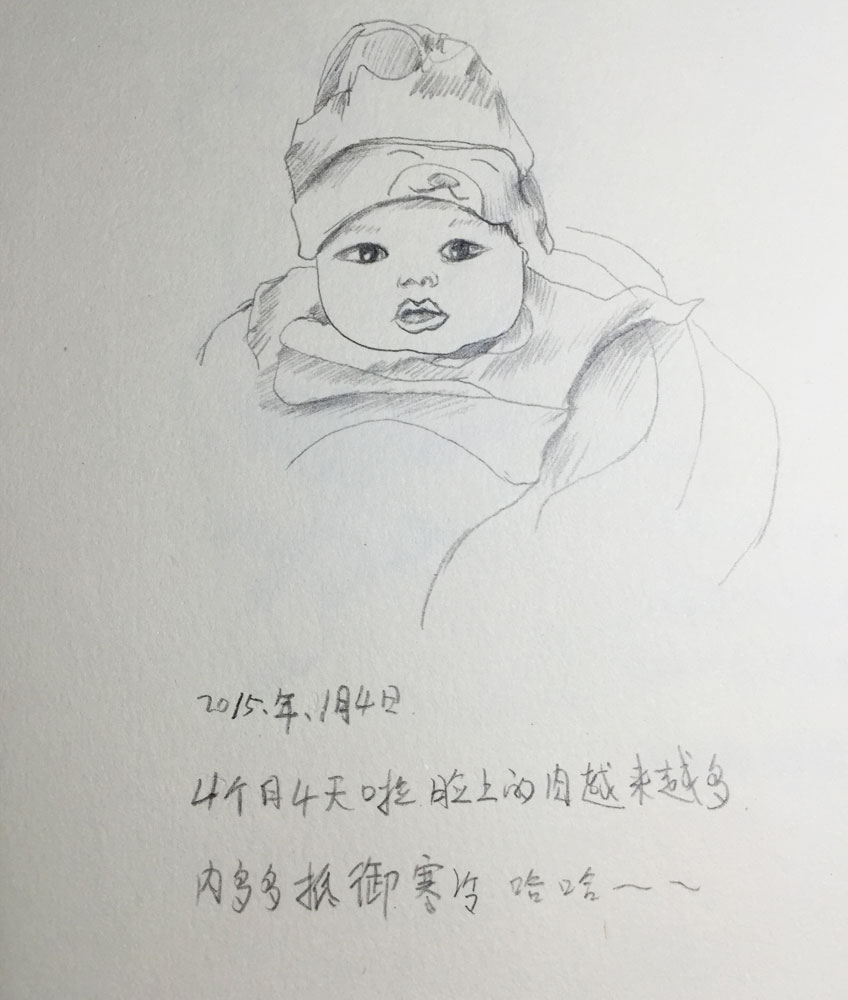 2015.年.1月4日
4个月4天啦 脸上的肉越来越多
肉多多抵御寒冷 哈哈~~